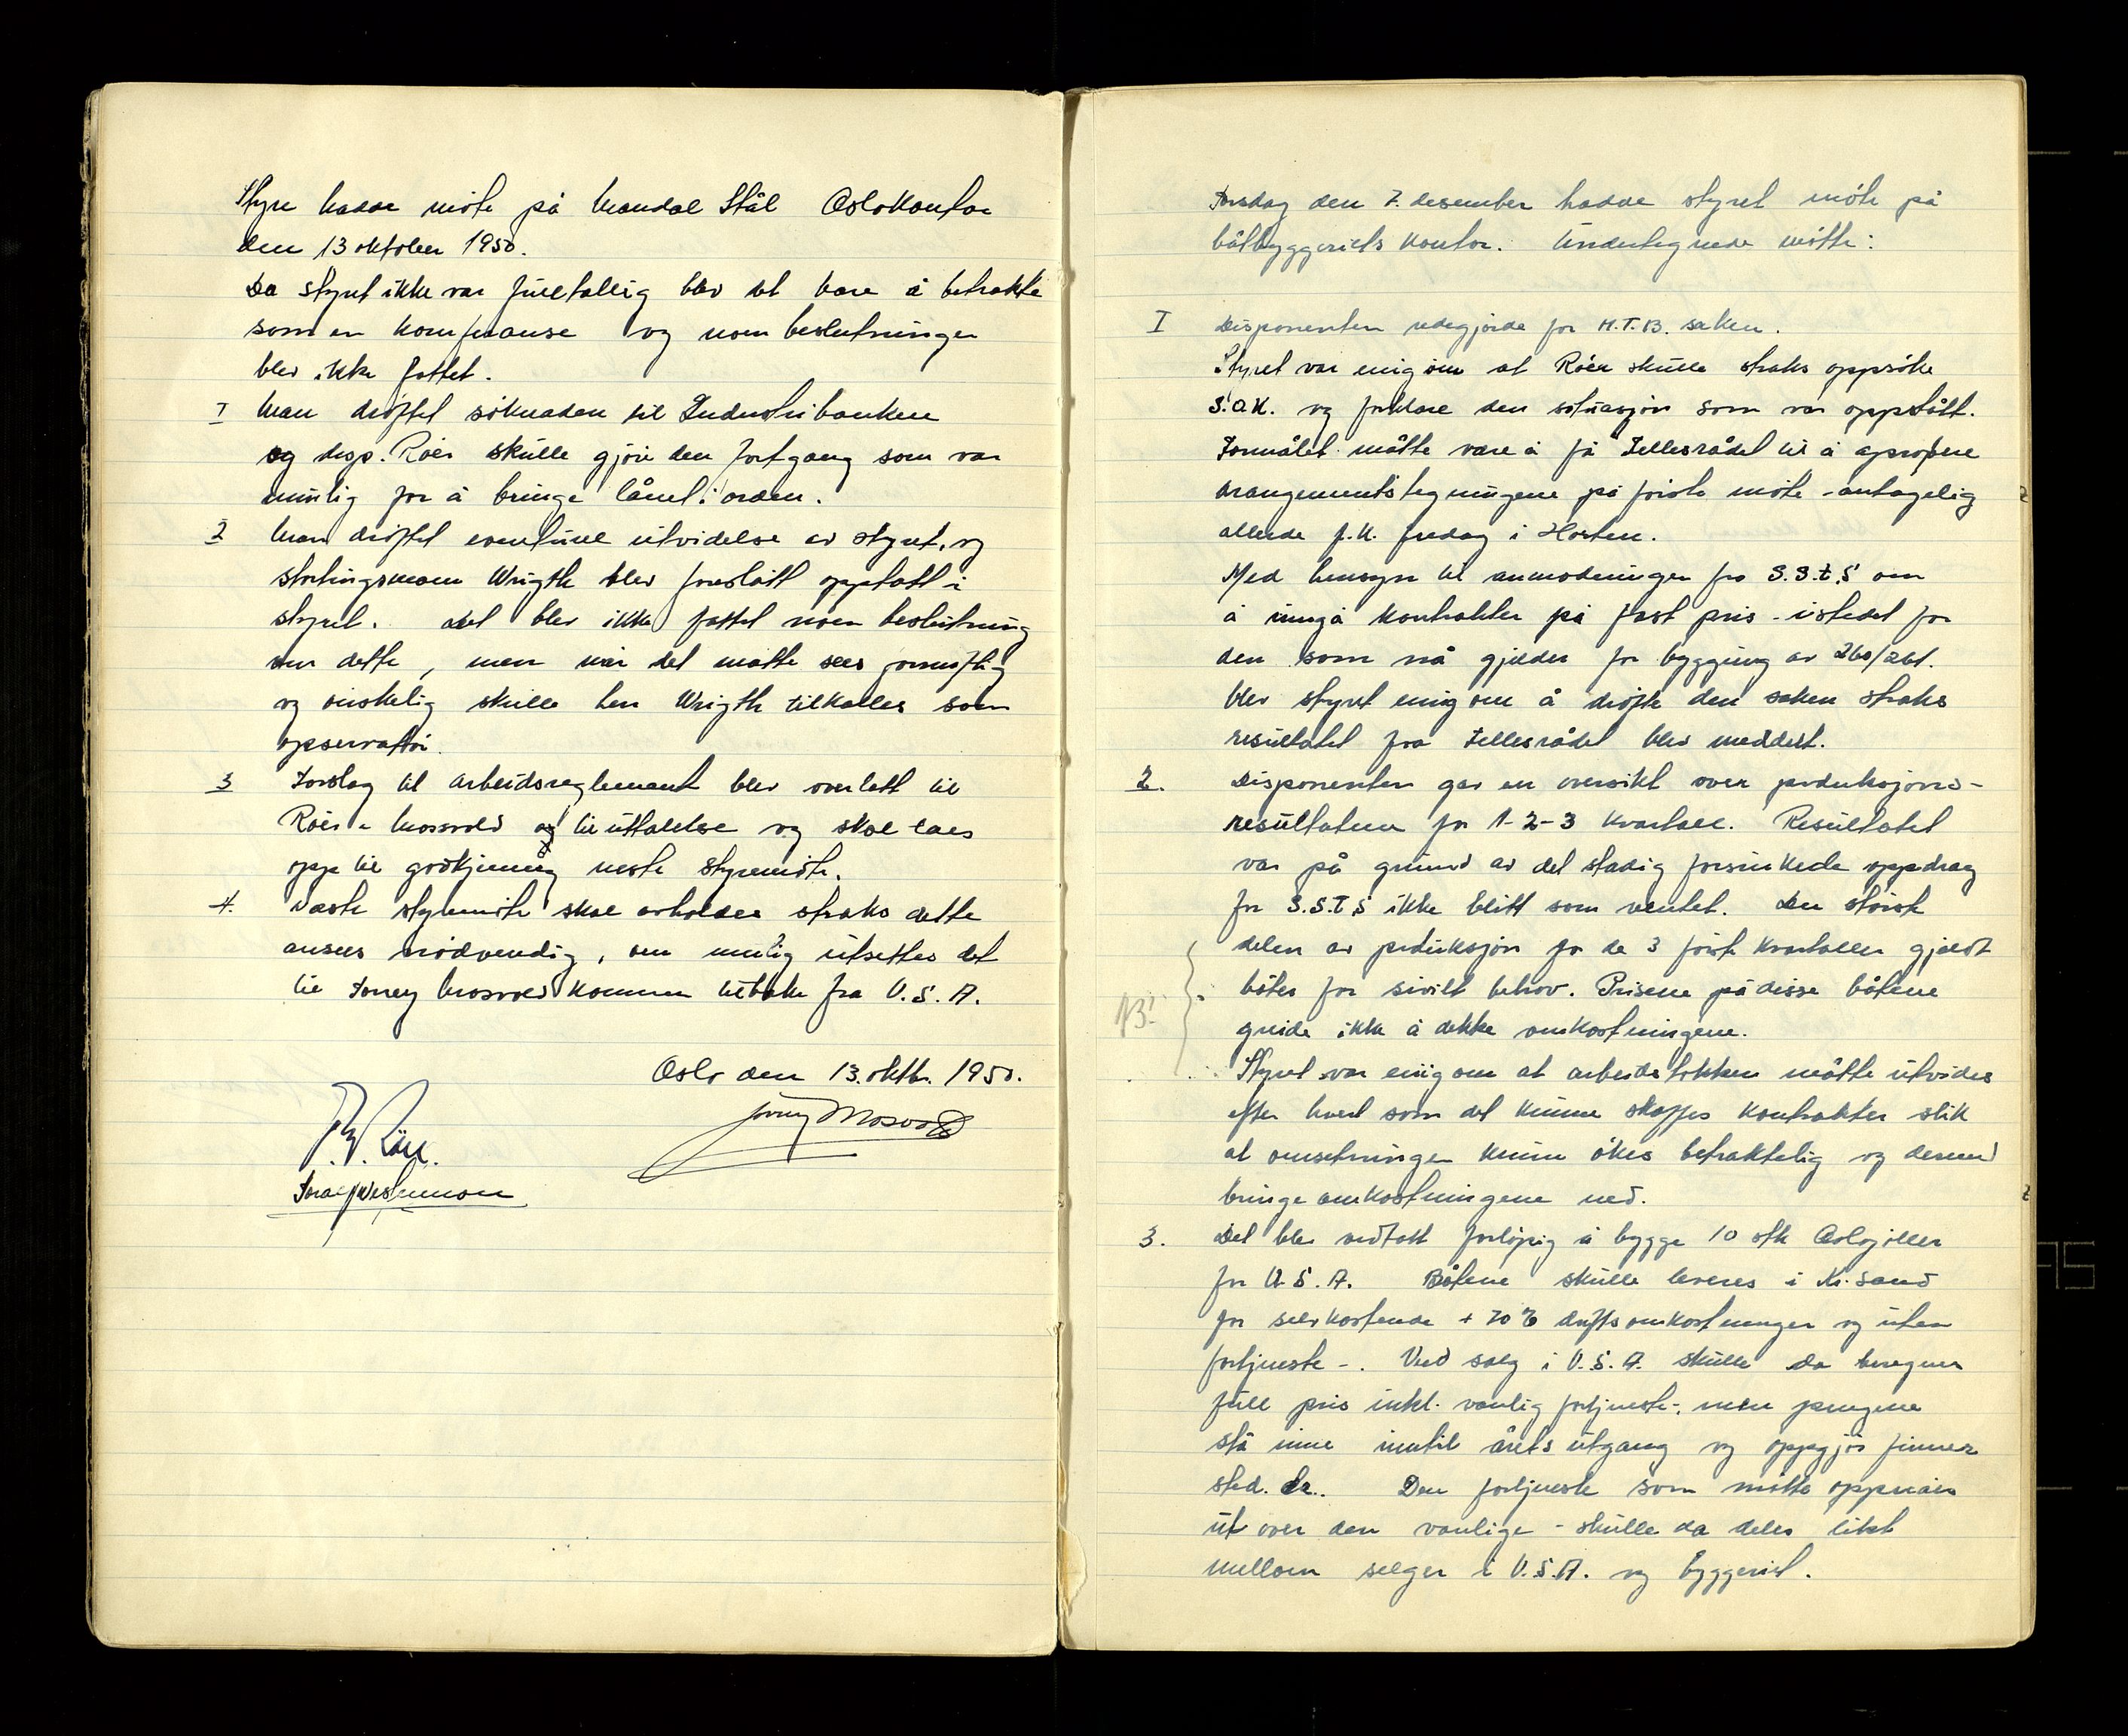 Styre hadde möte på Mandal Stål Oslokontor
den 13 oktober 1950.
Da styret ikke var fulltallig blev det bare å betrakte
som en konferanse og noen beslutninger
blev ikke fattet.
I Man dröftet söknaden til Industribanken
og disp. Röer skulle gjöre den fortgang som var
mulig for å bringe lånet i orden.
2 Man dröftet eventuel utvidelse av styret, og
stortingsmann Wrigth blev foreslått opptatt i
styret. Det blev ikke fattet noen beslutning
om dette, men når det måtte sees fornuftig
og önskelig skulle herr Wrigth tilkalles som
opservatör.
3 Forslag til arbeidsreglement blev overlatt til
Röer & Mosvold og til uttalelse og skal taes
opp til godkjenning neste styremöte.
4. Neste styremöte skal avholdes straks dette
ansees nödvendig, om mulig utsettes det
til Torrey Mosvold kommer tilbake fra U.S.A.
Oslo den 13. oktbr. 1950.
Torrey Mosvold
Röer.
Torsdag den 7. desember hadde styret möte på
båtbyggeriets kontor. Undertegnede mötte:
I Disponenten redegjorde for M.T.B. saken.
Styret var enig om at Röer skulle straks oppsöke
S.O.K. og forklare den situasjon som var oppstått.
Formålet måtte være å få Fellesrådet til å aprobere
arangementstegningene på förste möte - antagelig
allerede f.k. fredag i Horten.
Med hensyn til anmodningen fra S.S.t.S om
å inngå kontrakter på fast pris - istedet for
den som nå gjelder for bygging av 260/261.
blev styret enig om å dröfte den saken straks
resultatet fra Fellesrådet blev meddelt.
2. Disponenten gav en oversikt over produksjons-
resultatene for 1-2-3 kvartall. Resultatet
var på grunn av det stadig forsinkede oppdrag
for S.S.T.S ikke blitt som ventet. Den störste
delen av produksjon for de 3 förste kvartaller gjaldt
båter for sivilt behov. Prisene på disse båtene
NB!
greide ikke å dekke omkostningene.
Styret var enig om at arbeidsstokken måtte utvides
efter hvert som det kunne skaffes kontrakter slik
at omsetningen kunne ökes betraktelig og dermed
bringe omkostningene ned.
3. Det blev vedtatt forlöpig å bygge 10 stk Oslojoller
for U.S.A. Båtene skulle leveres i Kr.sand
for selvkostende + 70% driftsomkostninger og uten
fortjeneste -. Ved salg i U.S.A. skulle da beregnes
full pris inkl. vanlig fortjeneste -, men pengene
stå inne inntil årets utgang og oppgjör finner
sted. Den fortjeneste som måtte oppnåes
ut over den vanlige - skulle da deles likt
mellom selger i U.S.A. og byggeriet.